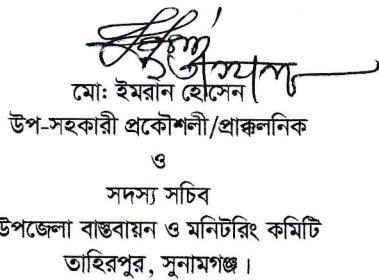 মো: ইমরান হোসেন
উপ-সহকারী প্রকৌশলী/প্রাক্কলনিক
ও
সদস্য সচিব
উপজেলা বাস্তবায়ন ও মনিটরিং কমিটি
তাহিরপুর, সুনামগঞ্জ।